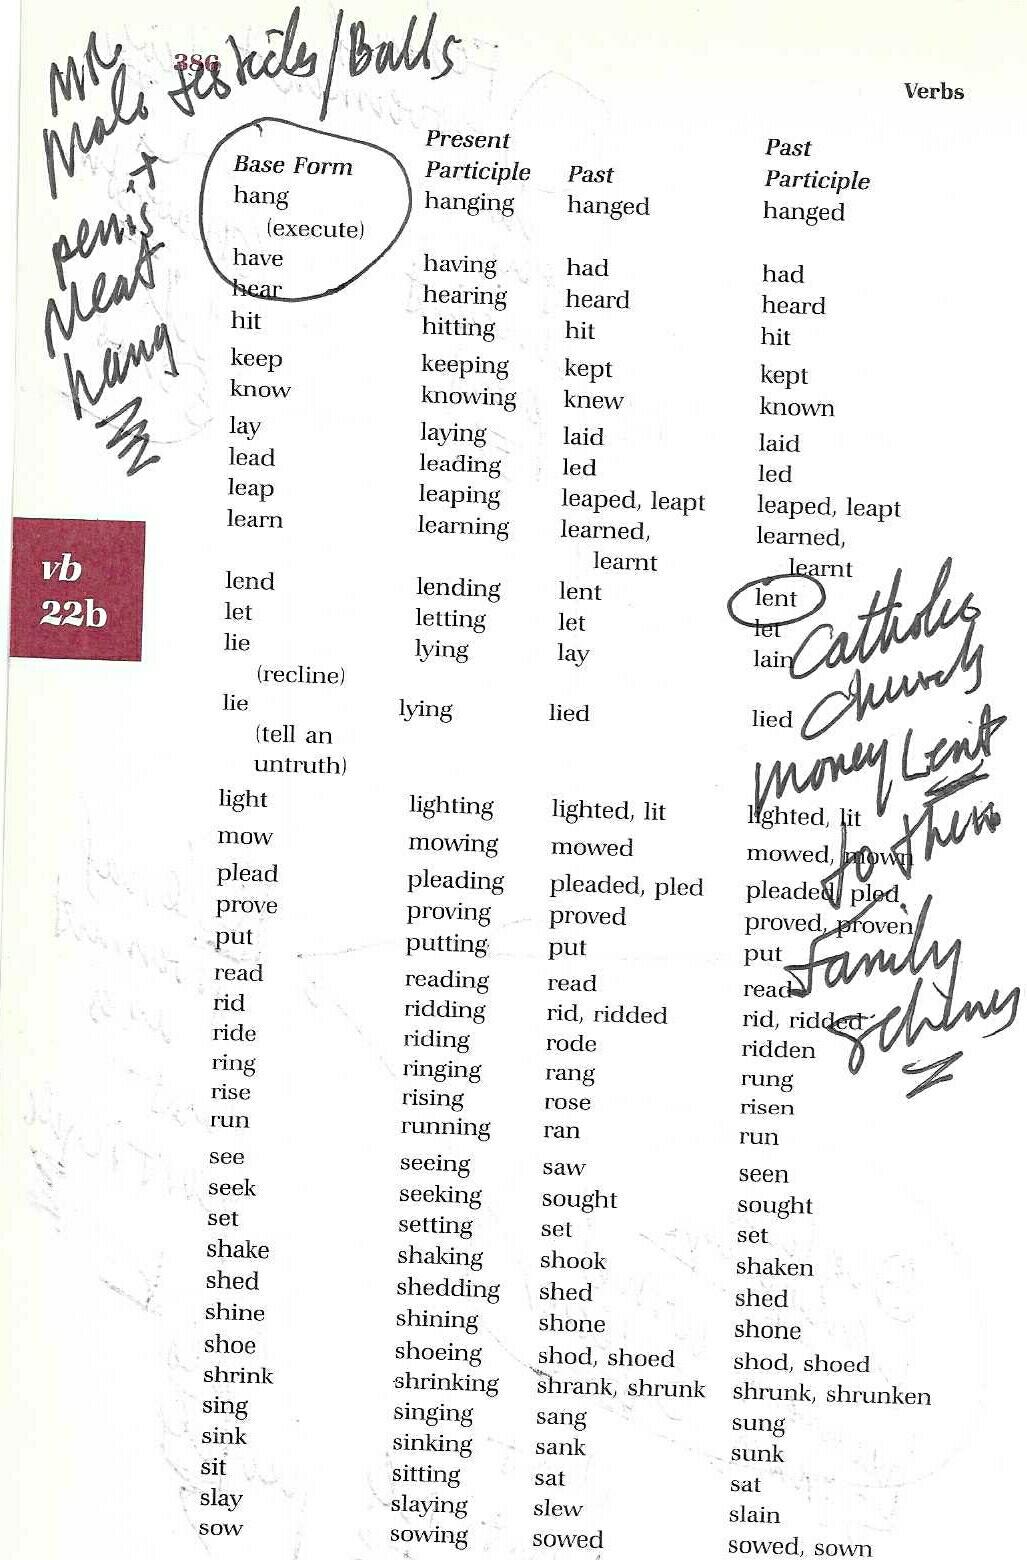 386
Verbs
MR.
Male testicles/Balls
it
penis
Meat
hang
Present Past
Base Form Participle Past Participle
hang hanging hanged hanged
(execute)
have having had had
hear hearing heard heard
hit hitting hit hit
keep keeping kept kept
know knowing knew known
lay laying laid laid
lead leading led led
leap leaping leaped, leapt leaped, leapt
learn learning learned, learned,
learnt learnt
vb
22b
lend lending lent lent
let letting let let
lie lying lay lain
(recline)
lie lying lied lied
(tell an
untruth)
Catholic
Church
Money Lent
to them
Family
light lighting lighted, lit lighted, lit
mow mowing mowed mowed, mown
plead pleading pleaded, pled pleaded, pled
prove proving proved proved, proven
put putting put put
read reading read read
rid ridding rid, ridded rid, ridded
ride riding rode ridden
ring ringing rang rung
rise rising rose risen
run running ran run
see seeing saw seen
seek seeking sought sought
set setting set set
shake shaking shook shaken
shed shedding shed shed
shine shining shone shone
shoe shoeing shod, shoed shod, shoed
shrink shrinking shrank, shrunk shrunk, shrunken
sing singing sang sung
sink sinking sank sunk
sit sitting sat sat
slay slaying slew slain
sow sowing sowed sowed, sown